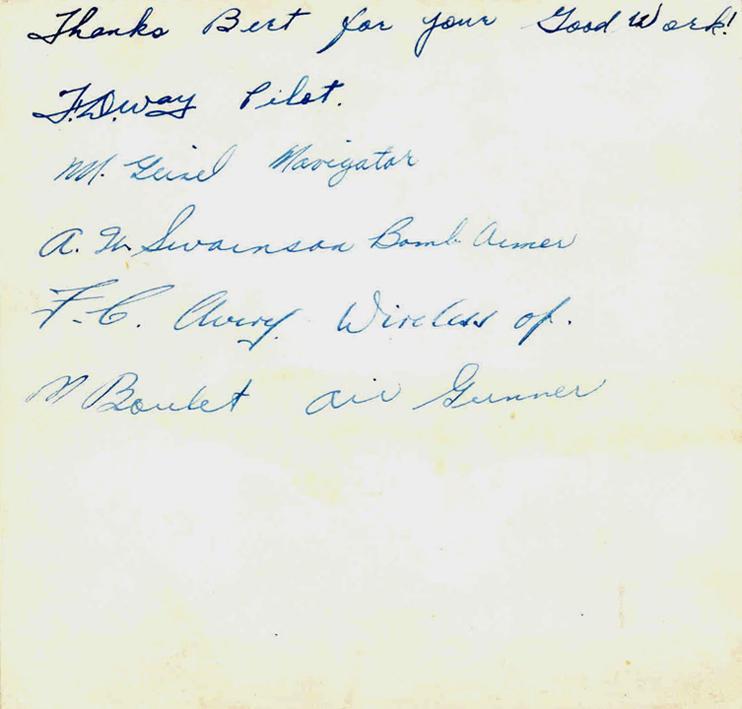 Thanks Bert for your Good Work!
F.D. Way Pilot.
M. Geisel Navigator
A. W Swainson Bomb Aimer
F.C. Avery. Wireless op.
M Boulet air Gunner